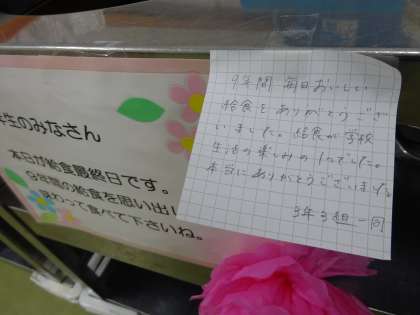 年生のみなさん
本日が給食最終日です。
9年間の給食を思い出し
味わって食べて下さいね。
9年間 毎日おいしい
給食をありがとうござ
いました。給食が学校
生活の楽しみの1つでした。
本当にありがとうございました。
3年3組一同